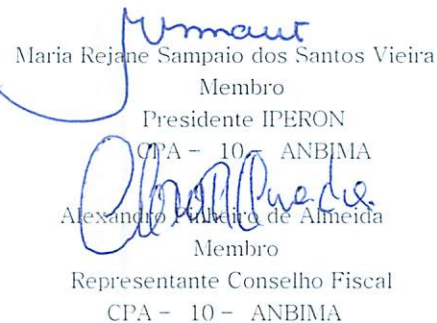 Maria Rejane Sampaio dos Santos Vieira
Membro
Presidente IPERON
CPA - 10 - ANBIMA
Alexandro Pinheiro de Almeida
Membro
Representante Conselho Fiscal
CPA - 10 - ANBIMA